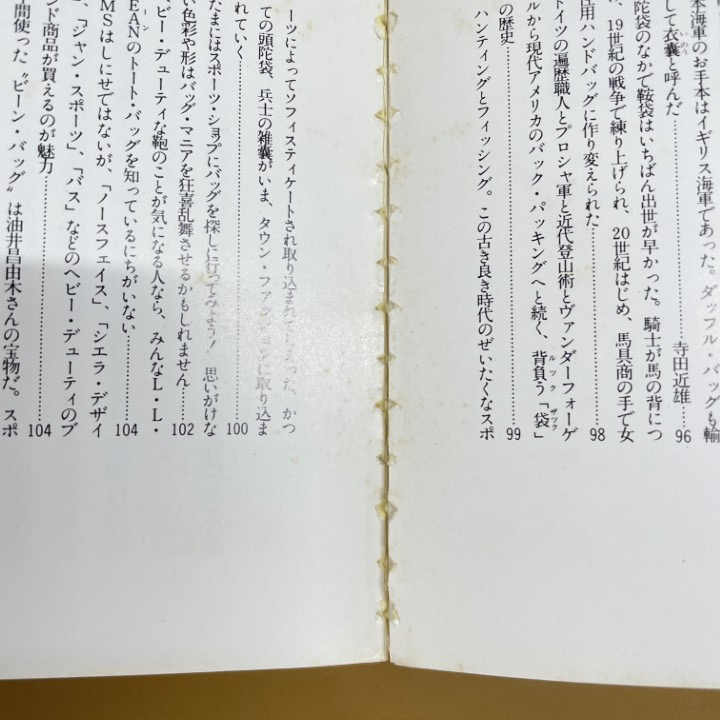 本海軍のお手本はイギリス海軍であった。ダッフル・バッグも輸
して衣嚢と呼んだ……寺田近雄……96
陀袋のなかで鞍袋はいちばん出世が早かった。騎士が馬の背につ
、19世紀の戦争で練り上げられ、20世紀はじめ、馬具商の手で女
性用ハンドバッグに作り変えられた……98
ドイツの遍歴職人とプロシャ軍と近代登山術とヴァンダーフォーゲ
ルから現代アメリカのバック・パッキングへと続く、背負う「袋」
の歴史……99
ハンティングとフィッシング。この古き良き時代のぜいたくなスポ
ーツによってソフィスティケートされ取り込まれてしまった、かつ
ての頭陀袋、兵士の雑嚢がいま、タウン・ファッションに取り込ま
れていく……100
たまにはスポーツ・ショップにバッグを探しに行ってみよう! 思いがけな
い色彩や形はバッグ・マニアを狂喜乱舞させるかもしれません……102
ビー・デューティな鞄のことが気になる人なら、みんなL・L・
EANのトート・バッグを知っているにちがいない……104
MSはしにせではないが、「ノースフェイス」、「シエラ・デザイ
」、「ジャン・スポーツ」、「バス」などのヘビー・デューティのブ
ンド商品が買えるのが魅力……104
間使った〝ビーン・バッグ〟は油井昌由木さんの宝物だ。スポ